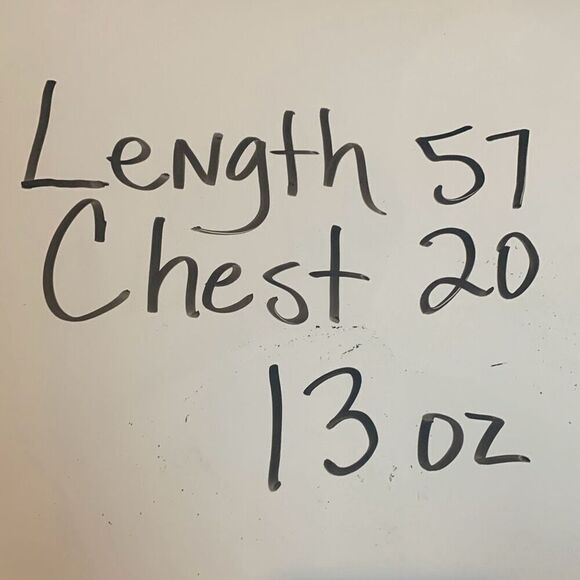 Length 57
Chest 20
13 oz